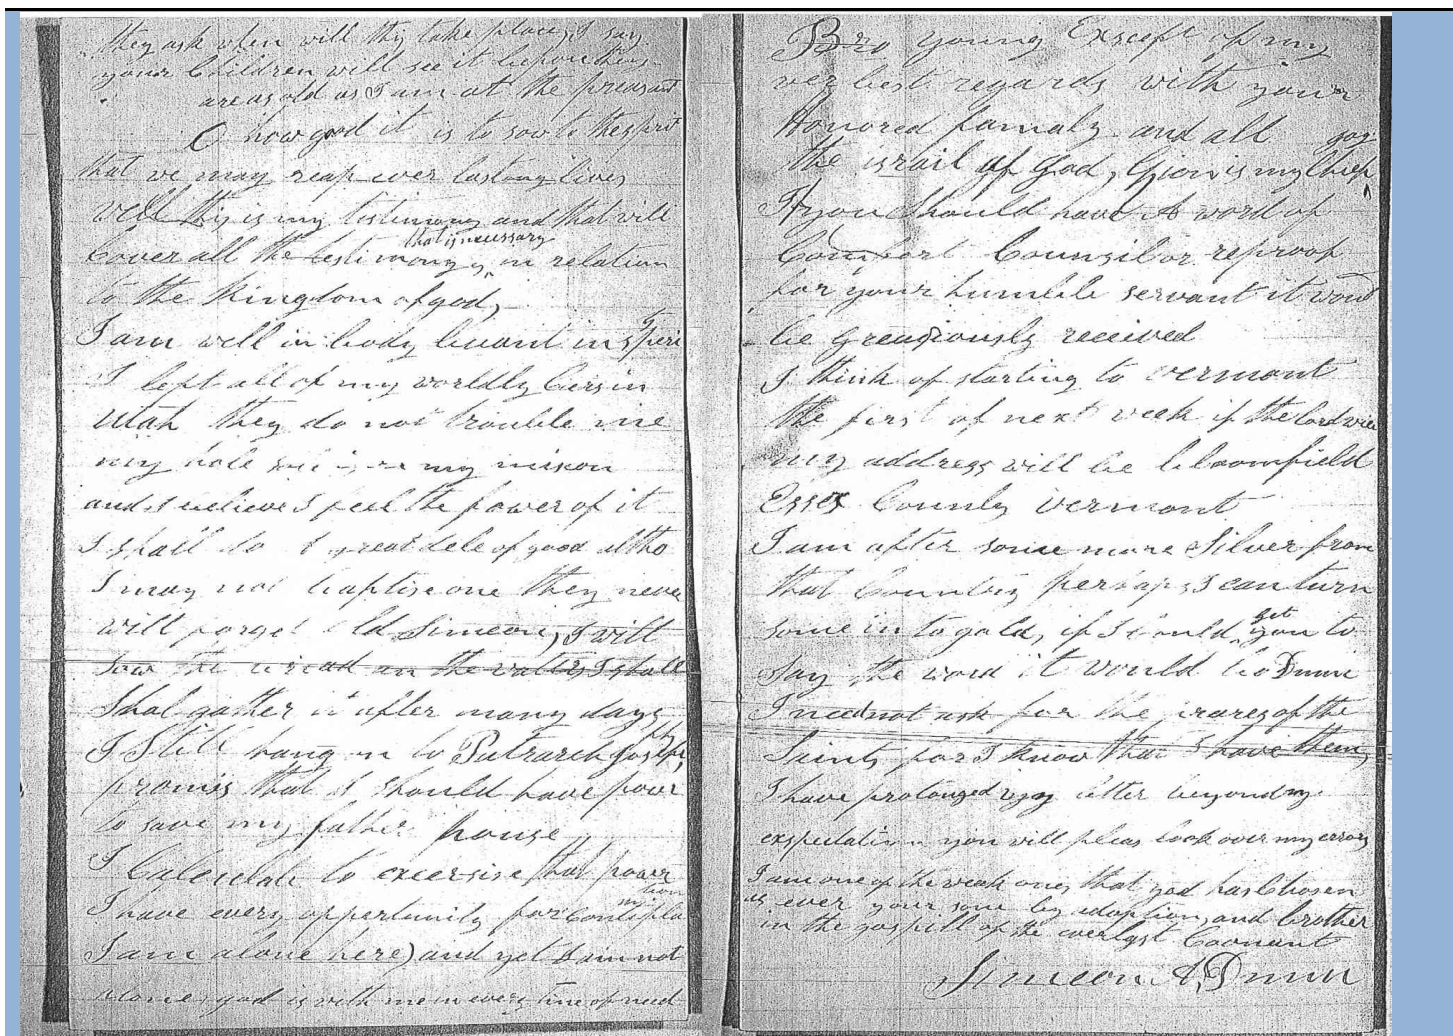 they ask when will thy take place, I say
your Children will see it before they
are as old as I am at the preasant
O how good it is to sow to the spirit
that we may reap ever lasting lives
well thy is my testimony and that will
Cover all the testimony that is necessary in relation
to the Kingdom of god,
I am well in body buant in speri
I left all of my worldly Cers in
Utah they do not trouble me
my hole sole is in my mison
and I believe I feel the power of it
I shall do a great dele of good altho
I may not baptise one they never
will forget old Simeon, I will
sow the bread on the watters I shall
Shal gather it after many days
I Still hang on to Patrarch Josephs
promis that I should have powr
to save my father house
I Calculate to excersise that power
I have every oppertunity for Contemplation
I am alone here) and yet I am not
alone, god is with me in every time of need
Bro young Except of my
ver best regards with your
Honored famaly and all
the israil of god, Zion is my Chief joy
If you should have A word of
Comfort Council or reproof
for your humble servant it would
be greaciously received
I think of starting to vermont
the first of next week if the lord will
my address will be bloomfield
Essex County vermont
I am after some more Silver from
that Country perhaps I can turn
some in to gold, if I could get you to
say the word it would be Dunn
I need not ask for the prares of the
Saints for I know that I have them,
I have prolonged my letter beyond my
expectation you will pleas look over my errors
I am one of the weak ones that god has Chosen
as ever your sone by adoption, and brother
in the gospill of the everlast Covnant
Simeon A, Dunn